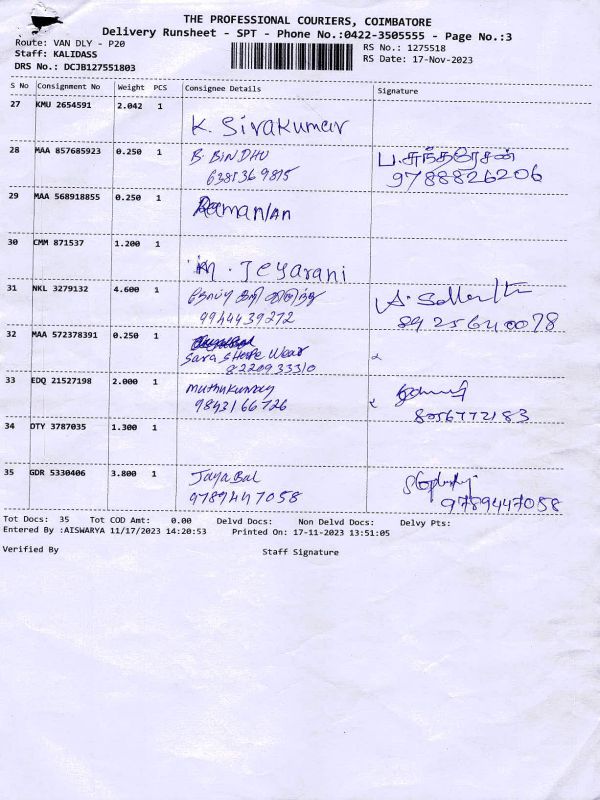 THE PROFESSIONAL COURIERS, COIMBATORE
Delivery Runsheet - SPT - Phone No.:0422-3505555 - Page No.:3
Route: VAN DLY - P20
RS No.: 1275518
Staff: KALIDASS
RS Date: 17-Nov-2023
DRS No.: DCJB127551803
S No Consignment No Weight PCS Consignee Details Signature
27 KMU 2654591 2.042 1
K. Sivakumar
28 MAA 857685923 0.250 1 B. BINDHU ப.சுந்தரேசன்
6381369815 9788826206
29 MAA 568918855 0.250 1
30 CMM 871537 1.200 1
M. Jeyarani
31 NKL 3279132 4.600 1
9944439272 8925640078
32 MAA 572378391 0.250 1
Sara Shoe Wear
8220933310
33 EDQ 21527198 2.000 1 Muthukumar
9843166726 8056772183
34 OTY 3787035 1.300 1
35 GDR 5330406 3.800 1 Jaya Bal
9789447058 9789447058
Tot Docs: 35 Tot COD Amt: 0.00 Delvd Docs: Non Delvd Docs: Delvy Pts:
Entered By :AISWARYA 11/17/2023 14:20:53 Printed On: 17-11-2023 13:51:05
Verified By Staff Signature